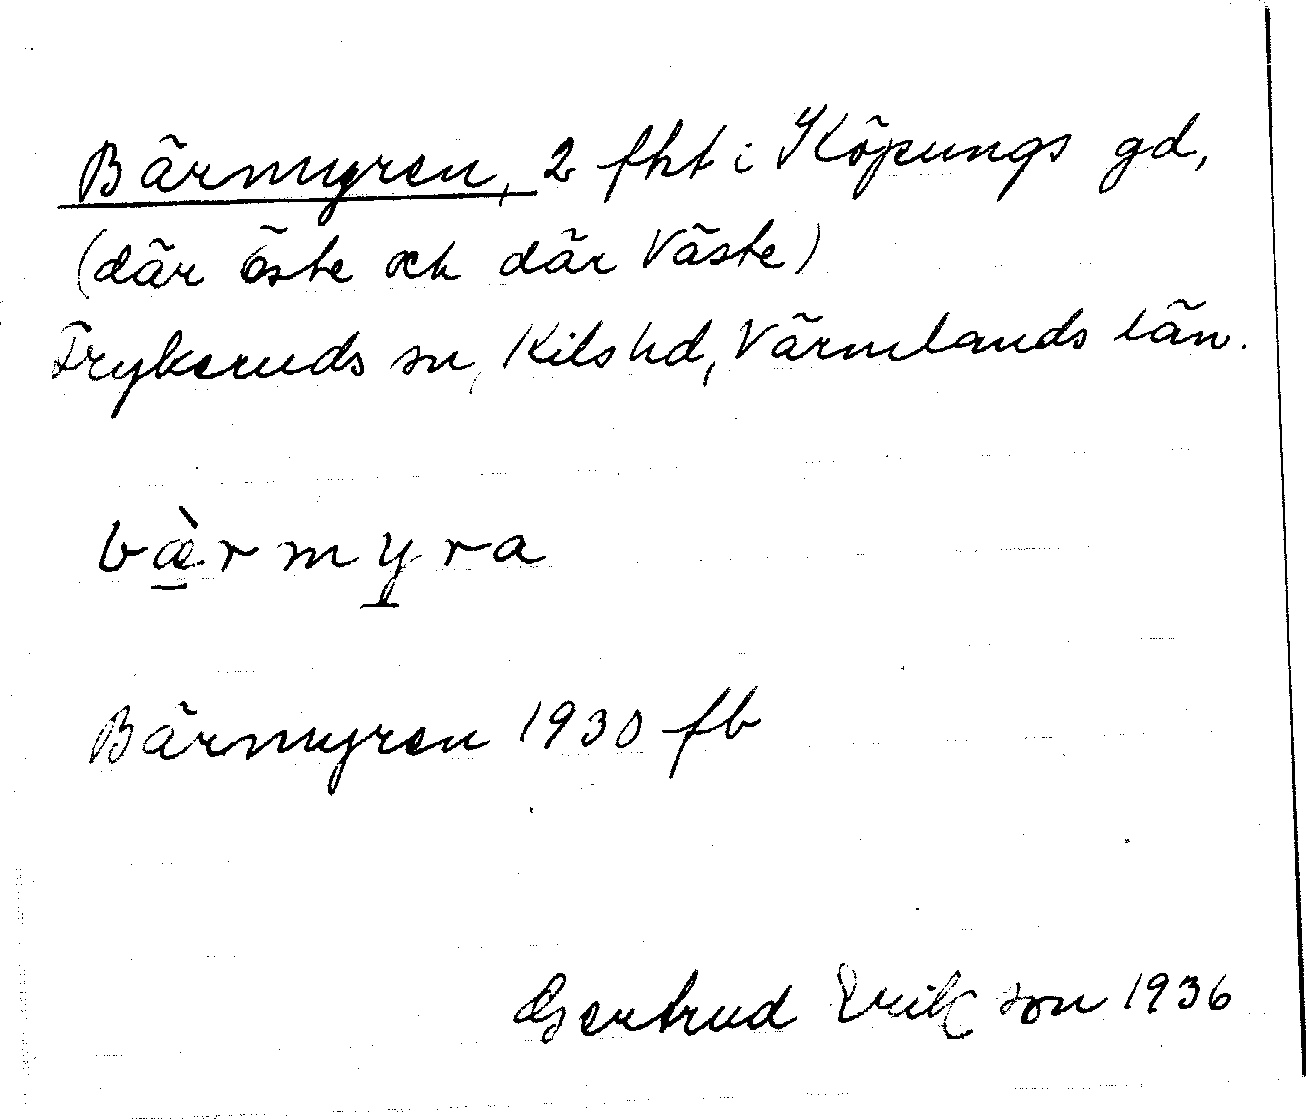 Bärmyren, 2 fht i Köpungs gd,
(där Öste och där Väste)
Frykeruds sn, Kils hd, Värmlands län.
bæ̱̀rmy̱ra
Bärmyren 1930 fb
Gertrud Erikson 1936